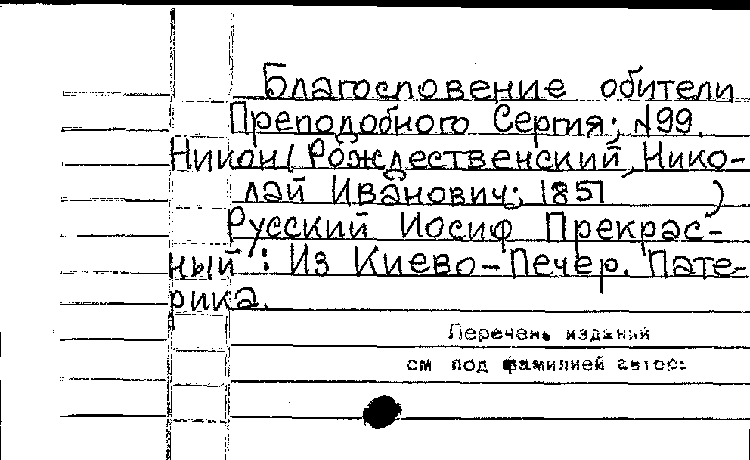 Благословение обители
Преподобного Сергия; №99.
Никон (Рождественский, Нико-
лай Иванович; 1851 )
Русский "Иосиф Прекрас-
ный": Из Киево-Печер. Пате-
рика.
Перечень изданий
см под фамилией автора